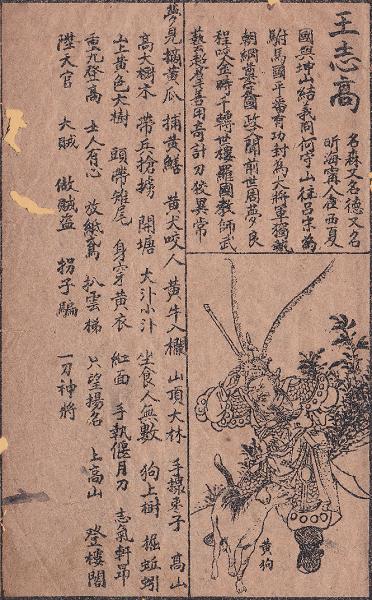 王志高
名森又名德又名
海甯人在西夏
國與坤山結義同何守山往呂宋為
駙馬國平番有功封為大將軍獨霸
朝綱篡國政又聞前世周良
程咬金時千轉世樓羅國教師武
藝超羣善用奇計刀狡異常
夢見摘黃瓜 捕黃鱔 黃犬咬人 黃牛入欄 山頂大林 手子 高山
高大樹木 帶兵搶擄 開塘 大汁小汁 坐食人無數 狗上樹 掘蚯蚓
山上黃色大樹 頭帶雉尾 身穿黃衣 紅面 手執偃月刀 志氣軒昂
重九登高 士人有心 放紙鳶 扒雲梯 只望揚名 上高山 登樓閣
陞天官 大賊 做賊盜 拐子騙 一刀神將
黃狗